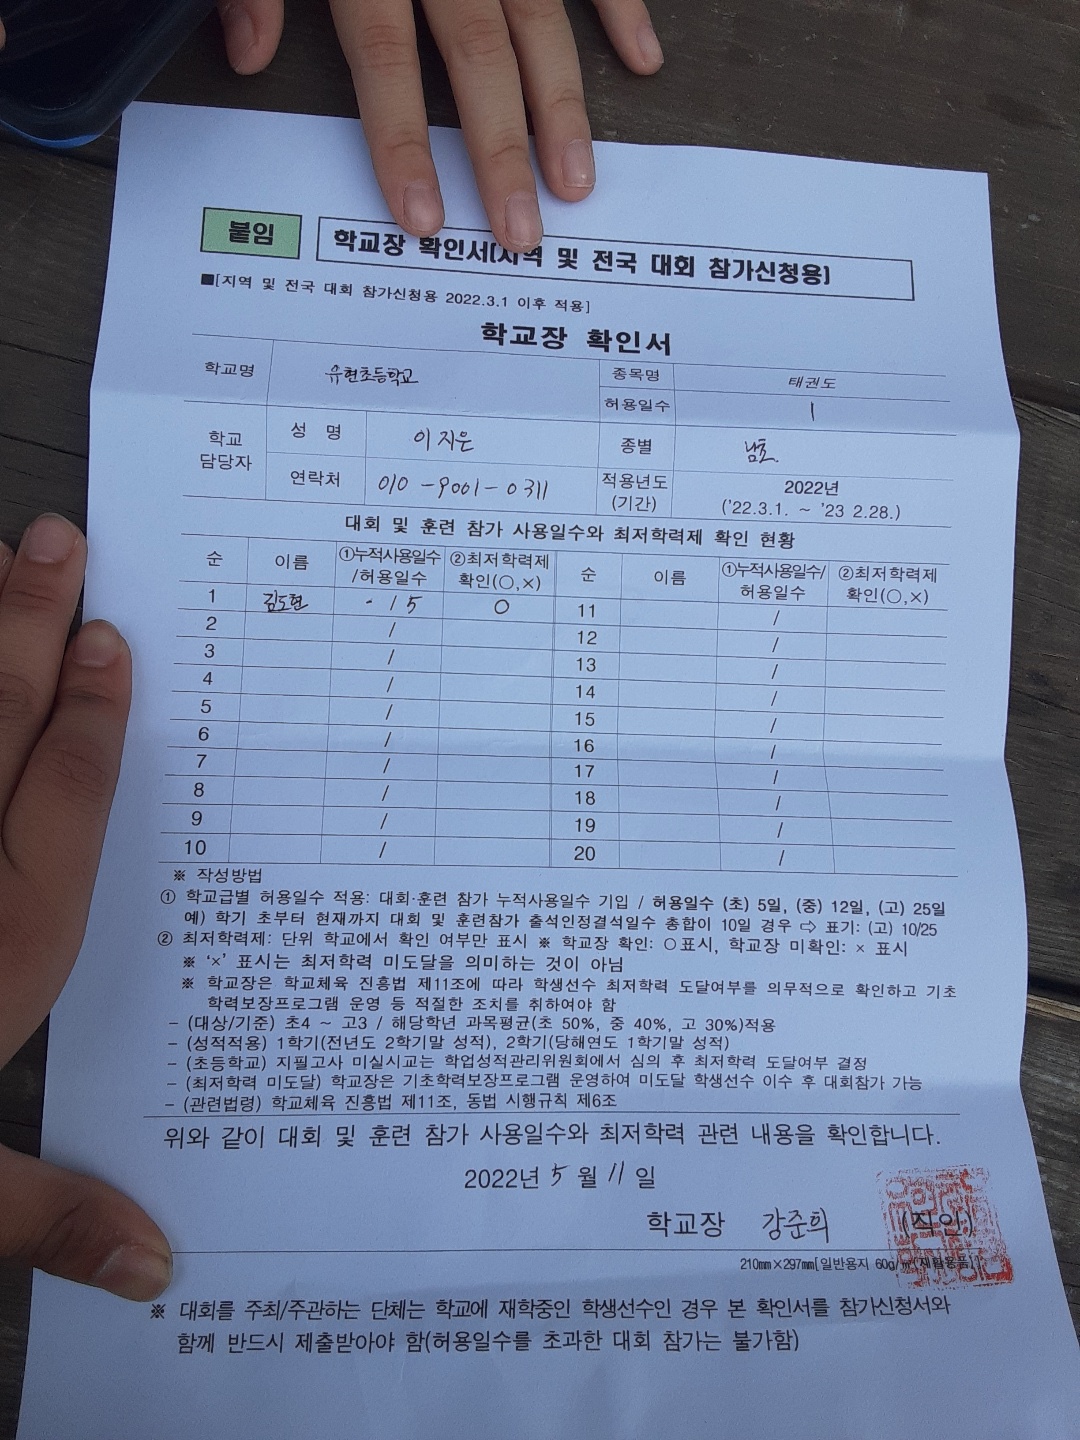 붙임
학교장 확인서(지역 및 전국 대회 참가신청용)
■[지역 및 전국 대회 참가신청용 2022.3.1 이후 적용]
학교장 확인서
학교명 유현초등학교 종목명 태권도
허용일수 1
학교 담당자 성 명 이지은 종별 남초.
연락처 010-9001-0311 적용년도 (기간) 2022년 ('22.3.1. ~ '23 2.28.)
대회 및 훈련 참가 사용일수와 최저학력제 확인 현황
순 이름 ①누적사용일수 /허용일수 ②최저학력제 확인(○,×) 순 이름 ①누적사용일수/ 허용일수 ②최저학력제 확인(○,×)
1 김도현 - / 5 ○ 11 /
2 / 12 /
3 / 13 /
4 / 14 /
5 / 15 /
6 / 16 /
7 / 17 /
8 / 18 /
9 / 19 /
10 / 20 /
※ 작성방법
① 학교급별 허용일수 적용: 대회·훈련 참가 누적사용일수 기입 / 허용일수 (초) 5일, (중) 12일, (고) 25일
예) 학기 초부터 현재까지 대회 및 훈련참가 출석인정결석일수 총합이 10일 경우 ⇨ 표기: (고) 10/25
② 최저학력제: 단위 학교에서 확인 여부만 표시 ※ 학교장 확인: ○표시, 학교장 미확인: × 표시
※ '×' 표시는 최저학력 미도달을 의미하는 것이 아님
※ 학교장은 학교체육 진흥법 제11조에 따라 학생선수 최저학력 도달여부를 의무적으로 확인하고 기초
학력보장프로그램 운영 등 적절한 조치를 취하여야 함
- (대상/기준) 초4 ~ 고3 / 해당학년 과목평균(초 50%, 중 40%, 고 30%)적용
- (성적적용) 1학기(전년도 2학기말 성적), 2학기(당해연도 1학기말 성적)
- (초등학교) 지필고사 미실시교는 학업성적관리위원회에서 심의 후 최저학력 도달여부 결정
- (최저학력 미도달) 학교장은 기초학력보장프로그램 운영하여 미도달 학생선수 이수 후 대회참가 가능
- (관련법령) 학교체육 진흥법 제11조, 동법 시행규칙 제6조
위와 같이 대회 및 훈련 참가 사용일수와 최저학력 관련 내용을 확인합니다.
2022년 5 월 11 일
학교장 강준희 (직인)
210mm×297mm[일반용지 60g/㎡(재활용품)]
※ 대회를 주최/주관하는 단체는 학교에 재학중인 학생선수인 경우 본 확인서를 참가신청서와
함께 반드시 제출받아야 함(허용일수를 초과한 대회 참가는 불가함)